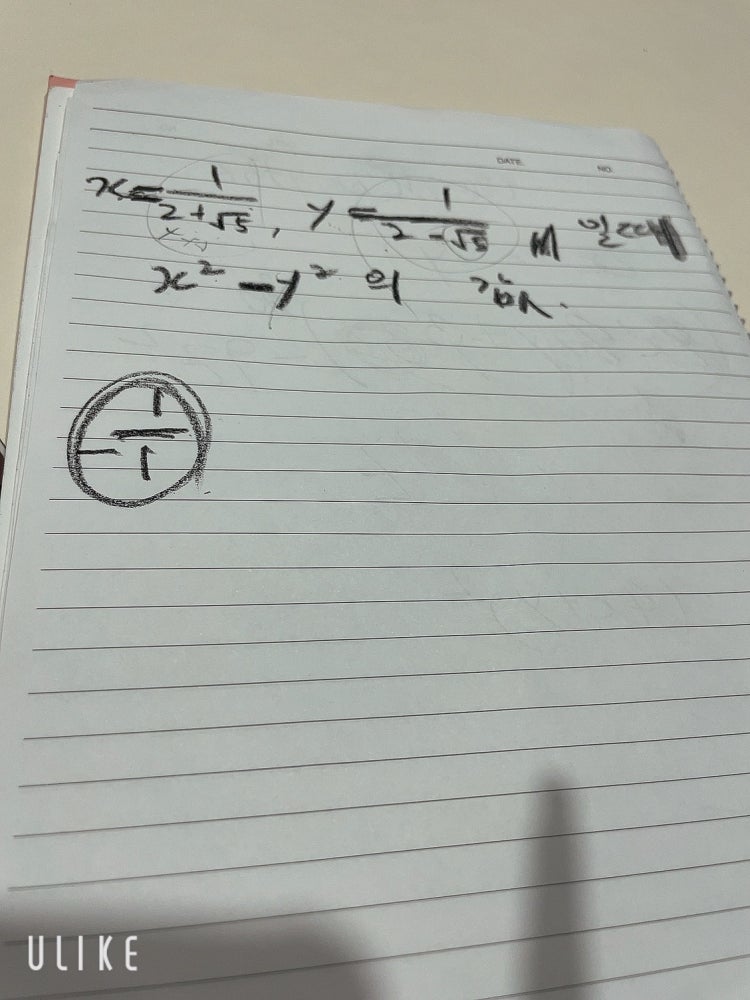 DATE NO.
x = 1/(2+√5), y = 1/(2-√5) 일때
x² - y² 의 값은.
1/1
ULIKE